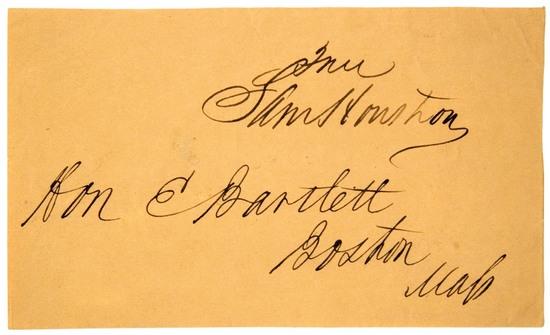 Free
Sam Houston
Hon E Bartlett
Boston
Mass